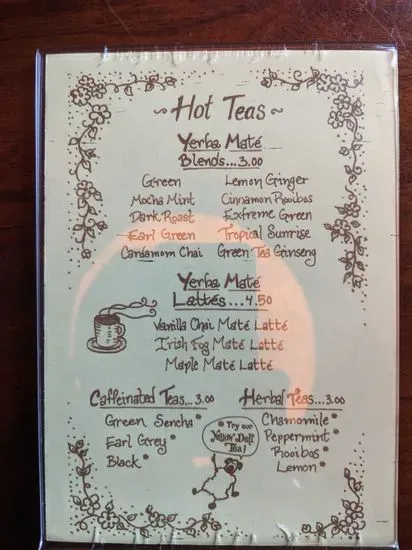 ~ Hot Teas ~
Yerba Maté
Blends...3.00
Green
Mocha Mint
Dark Roast
Earl Green
Cardamom Chai
Lemon Ginger
Cinnamon Rooibos
Extreme Green
Tropical Sunrise
Green Tea Ginseng
Yerba Maté
Lattés...4.50
Vanilla Chai Maté Latté
Irish Fog Maté Latté
Maple Maté Latté
Caffeinated Teas...3.00
Green Sencha*
Earl Grey*
Black*
Herbal Teas...3.00
Chamomile*
Peppermint*
Rooibos*
Lemon*
* Try our
Yellow Deli
Tea!